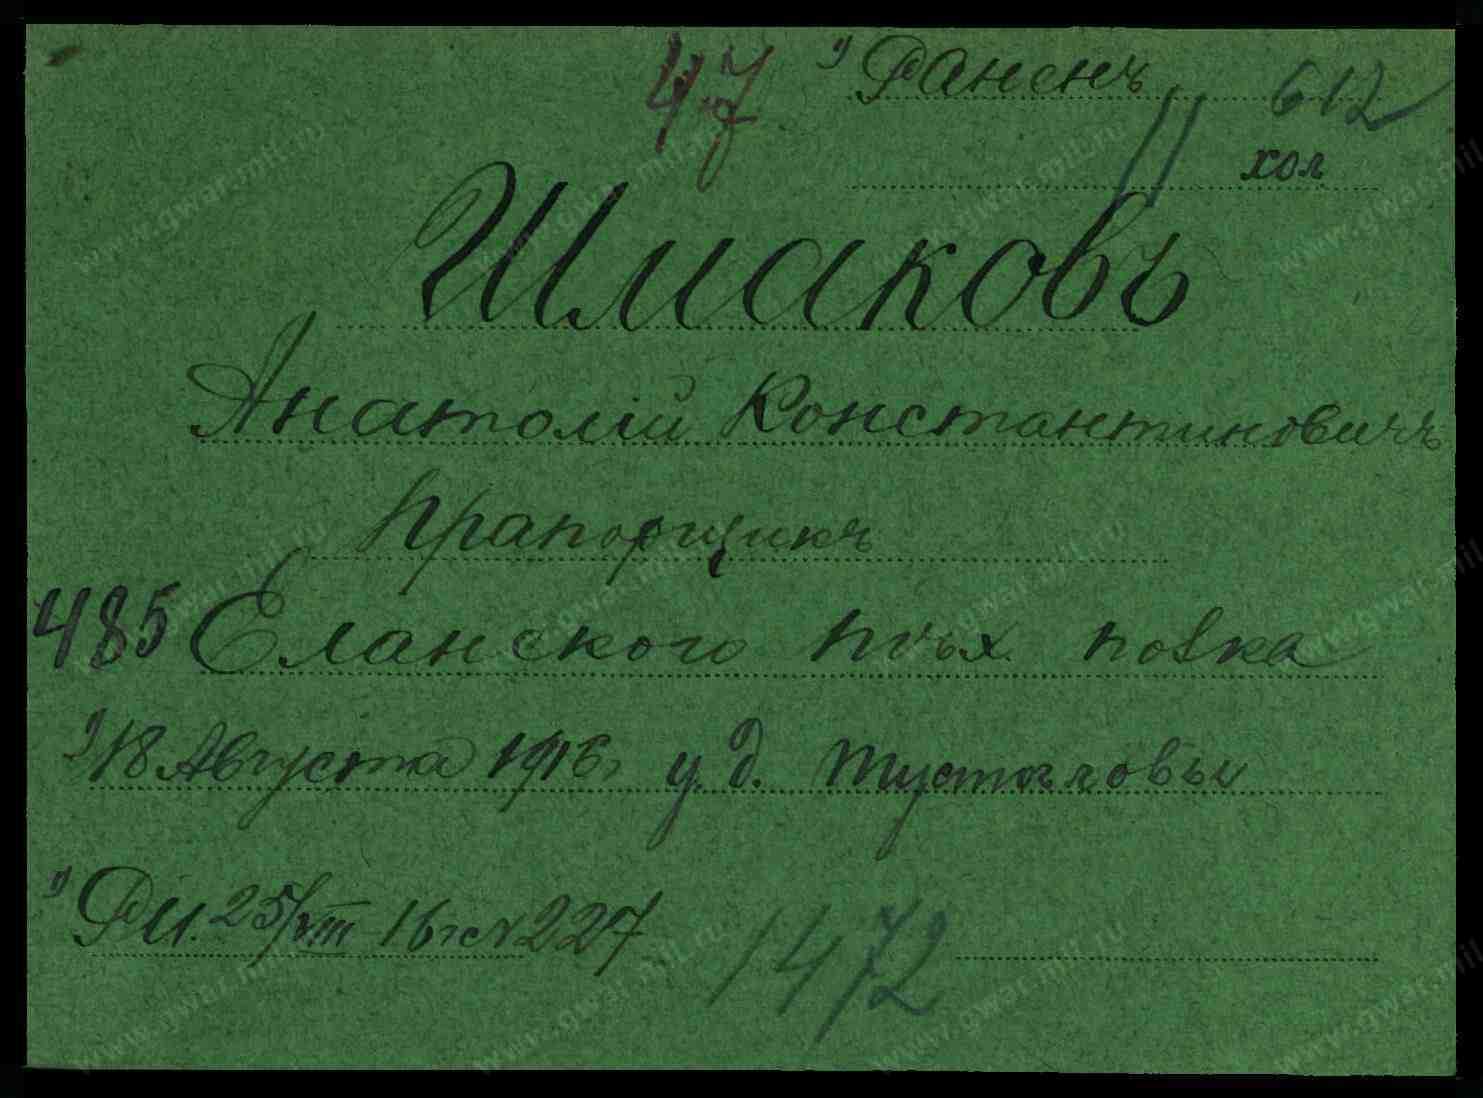 47 1) Раненъ 612
11 хол
Шмаковъ
Анатолій Константиновичъ
Прапорщикъ
485 Еланского пѣх. полка
1) 18 Августа 1916г. у д. Тустогловы
1) 25/VIII 16г № 227 1472
www.gwar.mil.ru